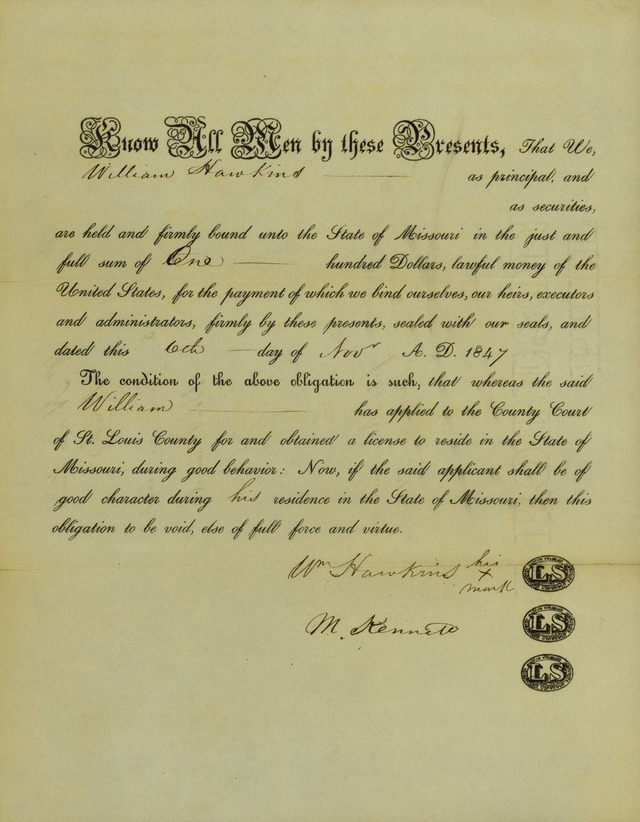 Know All Men by these Presents, That We,
William Hawkins as principal, and
as securities,
are held and firmly bound unto the State of Missouri in the just and
full sum of One hundred Dollars, lawful money of the
United States, for the payment of which we bind ourselves, our heirs, executors
and administrators, firmly by these presents, sealed with our seals, and
dated this 6th day of Novr A. D. 1847
The condition of the above obligation is such, that whereas the said
William has applied to the County Court
of St. Louis County for and obtained a license to reside in the State of
Missouri, during good behavior: Now, if the said applicant shall be of
good character during his residence in the State of Missouri, then this
obligation to be void, else of full force and virtue.
Wm Hawkins his
x
mark
LS
M. Kennett
LS
LS